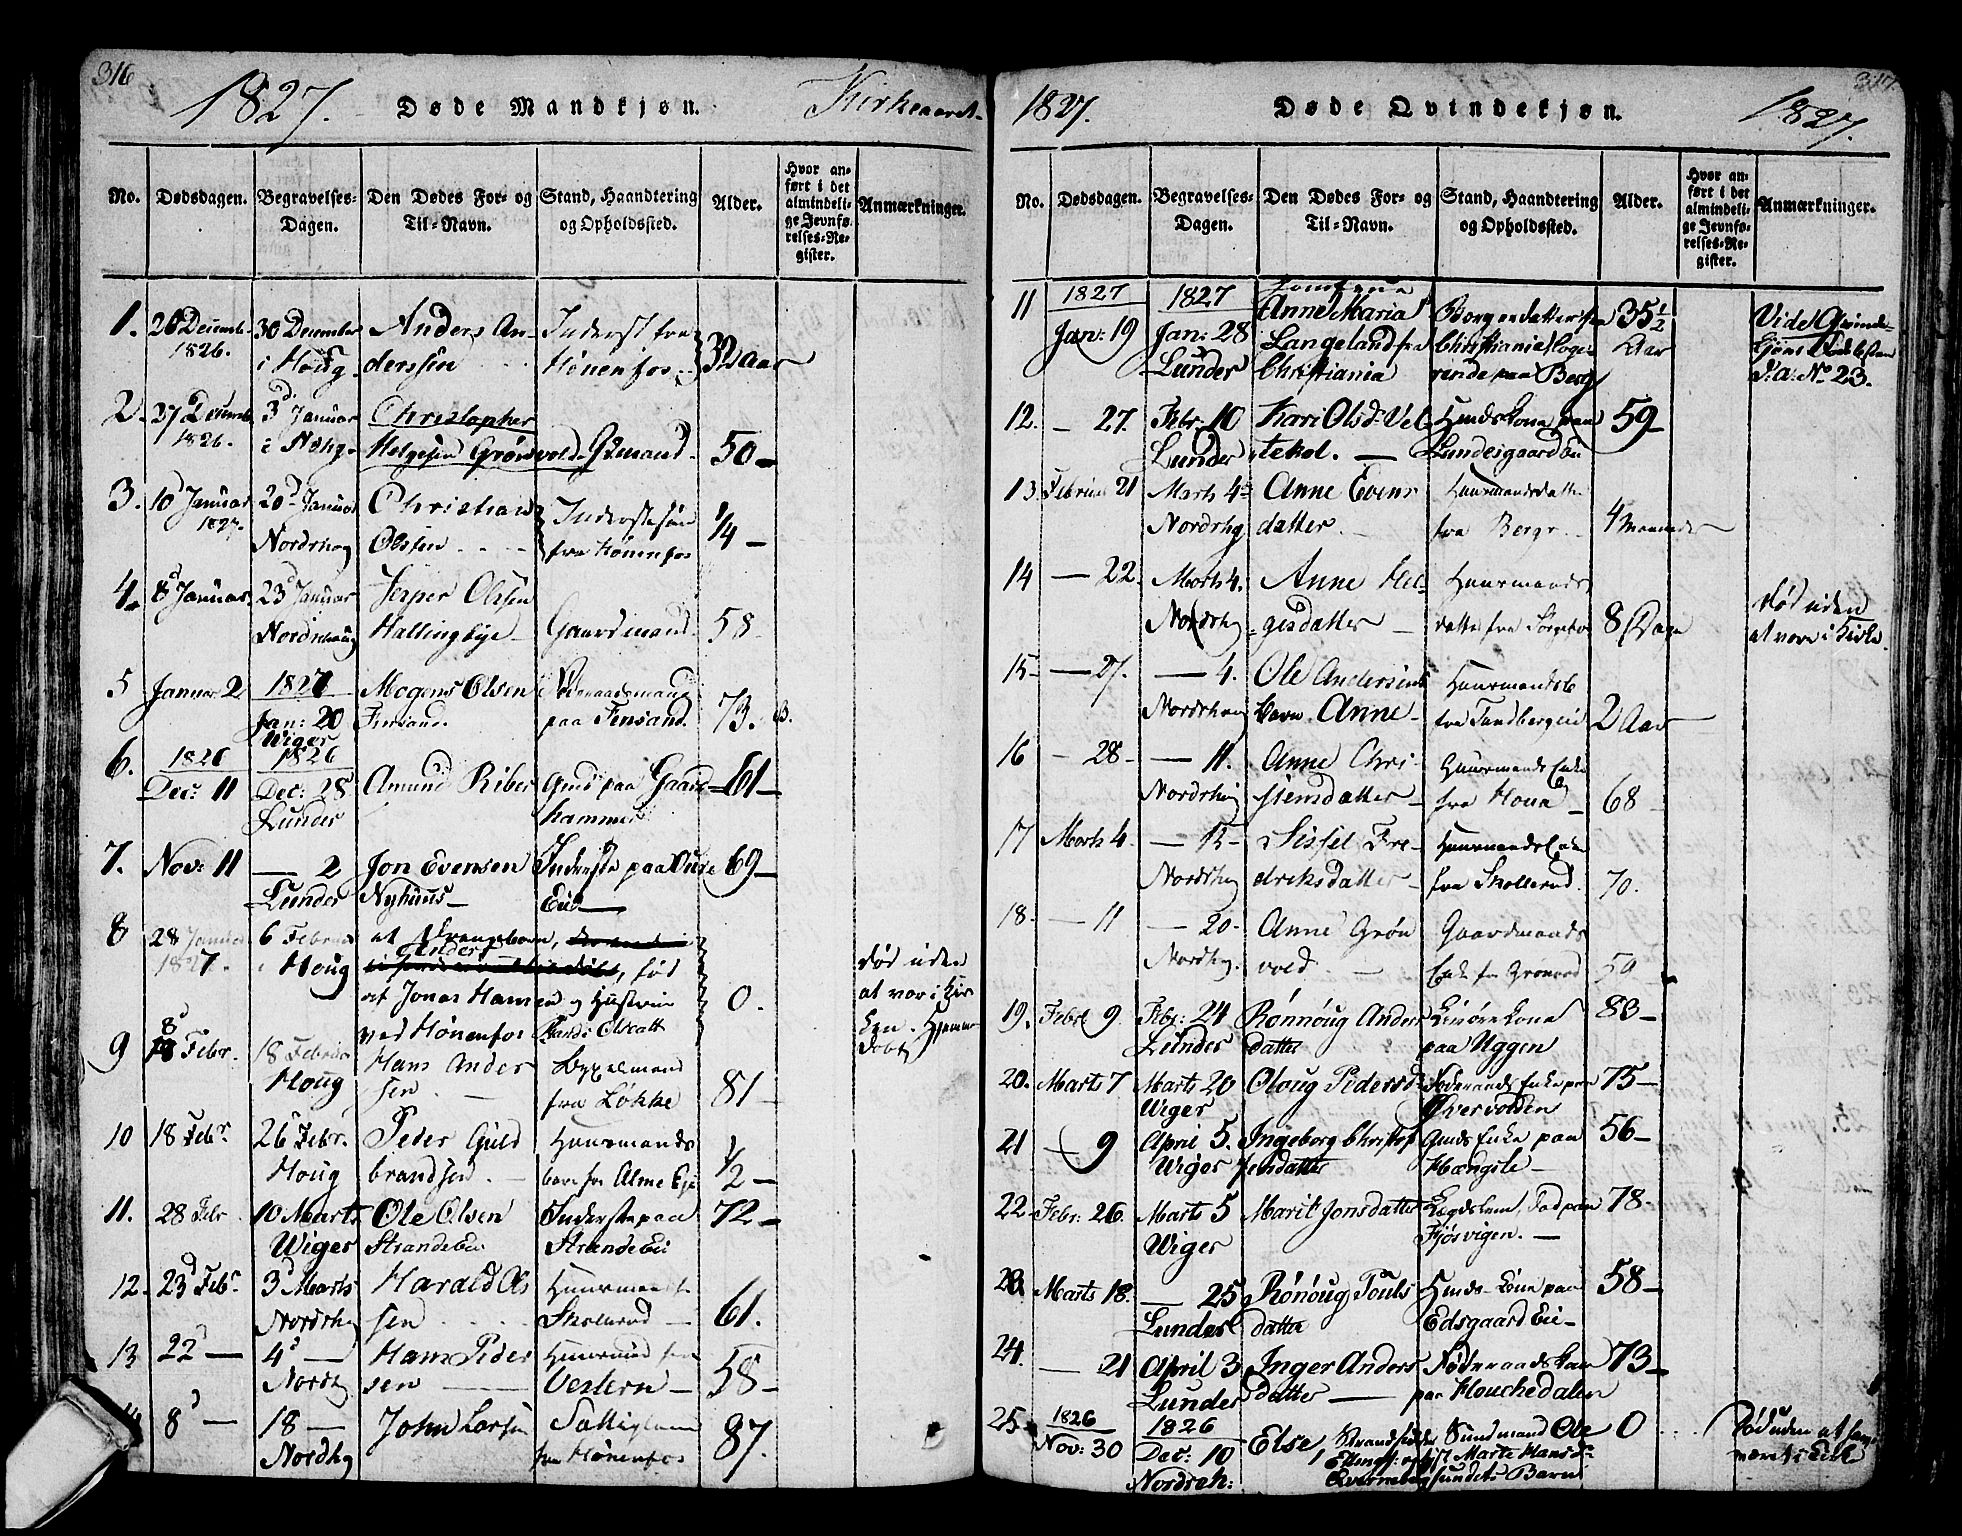 316
1827. Døde Mandkjøn.
No. Dødsdagen. Begravelses-Dagen. Den Dødes For- og Til-Navn. Stand, Haandtering og Opholdssted. Alder. Hvor anført i det almindelige Jevnførelses-Register. Anmærkninger.
1. 26 Decembr 1826. 30 December i Houg Anders Anderssen Inderst fra Hønenfos 32 aar
2. 27 Decemb 1826. 3d Januar Christopher Helgesen Grønvold Gmand 50
3. 10d Januar 1827. 20d Januar Nordrhog Christian Olssen Inderstesøn fra Hønenfos 1/4
4. 8d Januar 23d Januar Nordrehoug Jesper Olssen Hallingbye Gaardmand 58
5 Januar 2 1827 Jan: 20 Wiger Mogens Olsen Fensand Føderaadsmand paa Fensand. 73.
6. 1826 Decr 11 1826 Dec: 28 Lunder Amund Riber Gmd paa Gaardhammer 61
7. Nov: 11 — 2 Lunder Jon Evensen Nyhuus Inderste paa 69
8 28 Januar 1827. 6 Februar i Houg et Anders født af Jonas Hansen og Hustrue ved Hønenfos 0. død uden at vær i Kirken. Hjemmedøbt
9 8d Febr. 18 Februar Houg Hans Andersen fra Løkke 81
10 18 Febr 26 Febr. Houg Peder Guldbrandsen Huusmands barn fra Alme Eje 1/2
11. 28 Febr 10 Marts Wiger Ole Olsen Strandeeie Inderste paa Strandeeie 72
12. 23d Febr 3d Marts Nordrhg Harald Olssen Huusmand Skollerud 61.
13 22d — 4d — Nordhg Hans Pedersen Huusmand fra Vestern 58
8d — 18 — Nordhg John Larsen fra Hønenfos 87.
1827. Døde Qvindekjøn. 1827.
317.
No. Dødsdagen. Begravelses-Dagen. Den Dødes For- og Til-Navn. Stand, Haandtering og Opholdssted. Alder. Hvor anført i det almindelige Jevnførelses-Register. Anmærkninger.
11 1827 Jan: 19 1827 Jan: 28 Lunder Jomfrue Anne Maria Langeland fra Christiania Borgerdatter fra Christiania, logerende paa Berg 35 1/2 Aar Vide Qvindekjøns Dødelisten No 23.
12. — 27. Febr: 10 Lunder Kari Olsd: Veltekol. Huuskone paa Lundesgaard Eie 59
13. Februar 21 Marts 4 Nordrhg Anne Evensdatter Huusmandsdatter fra Berger 4 Maaneder
14 — 22. Marts 4. Nordrhg Anne Helgesdatter Huusmandsdatter fra 8 Dage død uden at være i Kirke.
15 — 27. — 4. Nordrhoug Ole Andersens barn Anne Huusmands fra Tandberg eie 2 Aar
16 — 28 — 11. Nordrhog Anne Christensdatter Huusmands Enke fra Hona 68
17 Marts 4. — 15 Nordrhg Sissel Fredriksdatter Huusmands Enke fra Skollerud. 70.
18. — 11 — 20. Nordhg. Anne Grønvold Gaardmands Enke fra Grønvold 59
19. Febr 9. Febr: 24 Lunder Rønnoug Andersdatter paa Uggen 83
20. Marts 7 Marts 20 Wiger Oloug Pedersd Føderaads Enke paa Øvervolden 75
21 — 9 April 5. Wiger Ingeborg Christofersdatter Gmds Enke paa Hængsle 56
22. Febr: 26. Marts 5 Wiger Marit Jonsdatter Legdslem, død paa Fjøsvigen. 78
23. Marts 18. — 25 Lunder Rønoug Poulsdatter Huuds-kone paa Edsgaard Eie 58
24. — 21 April 3 Lunder Inger Andersdatter Føderaadskone paa Houchedalen 73
25 1826 Nov: 30 1826 Dec: 10 Nordreh: Else Strandsidder Sundmand Ole Marte Hansd: sundets Barn 0 Død uden at have været i Kirke